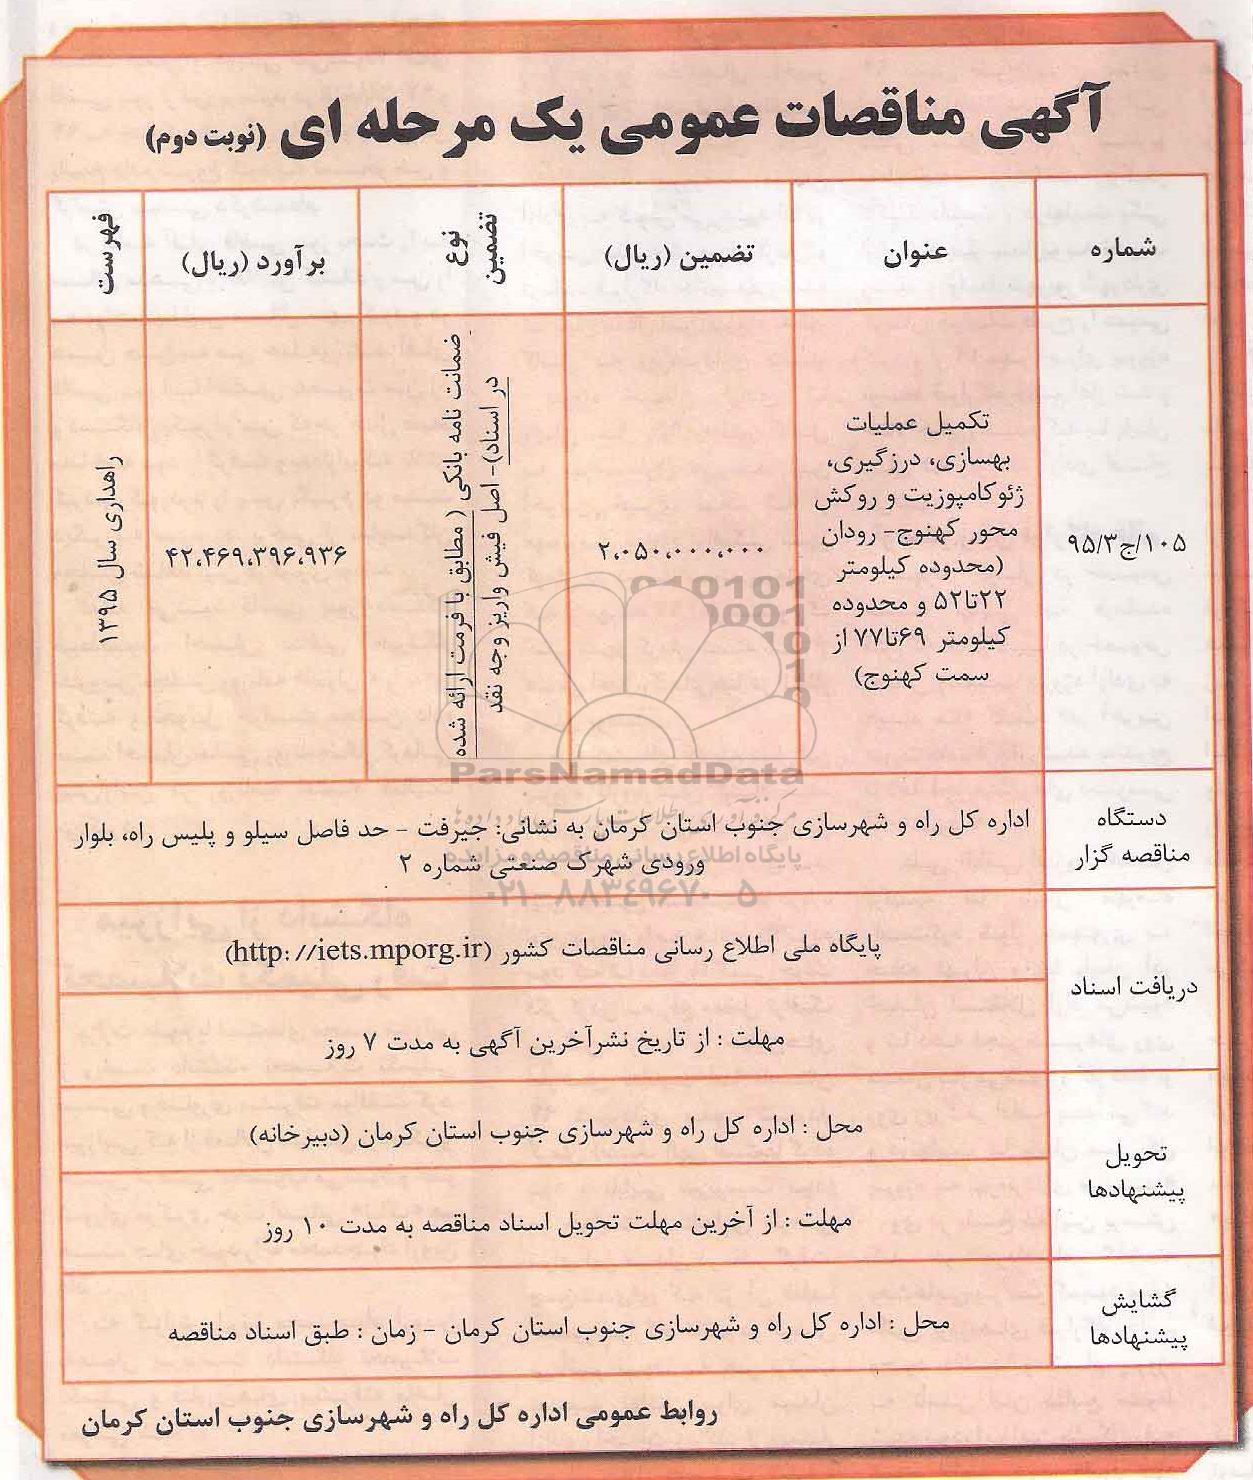 آگهی مناقصات عمومی یک مرحله ای (نوبت دوم)
شماره
عنوان
تضمین (ریال)
نوع
تضمین
برآورد (ریال)
فهرست
۱۰۵/ج۹۵/۳
تکمیل عملیات
بهسازی، درزگیری،
ژئوکامپوزیت و روکش
محور کهنوج- رودان
(محدوده کیلومتر
۲۲تا۵۲ و محدوده
کیلومتر ۶۹تا۷۷ از
سمت کهنوج)
۲،۰۵۰،۰۰۰،۰۰۰
ضمانت نامه بانکی ( مطابق با فرمت ارائه شده
در اسناد)- اصل فیش واریز وجه نقد
۴۲،۴۶۹،۳۹۶،۹۳۶
راهداری سال ۱۳۹۵
دستگاه
مناقصه گزار
اداره کل راه و شهرسازی جنوب استان کرمان به نشانی: جیرفت - حد فاصل سیلو و پلیس راه، بلوار
ورودی شهرک صنعتی شماره ۲
دریافت اسناد
پایگاه ملی اطلاع رسانی مناقصات کشور (http://iets.mporg.ir)
مهلت : از تاریخ نشرآخرین آگهی به مدت ۷ روز
تحویل
پیشنهادها
محل : اداره کل راه و شهرسازی جنوب استان کرمان (دبیرخانه)
مهلت : از آخرین مهلت تحویل اسناد مناقصه به مدت ۱۰ روز
گشایش
پیشنهادها
محل : اداره کل راه و شهرسازی جنوب استان کرمان - زمان : طبق اسناد مناقصه
روابط عمومی اداره کل راه و شهرسازی جنوب استان کرمان
ParsNamadData
پایگاه اطلاع رسانی مناقصه و مزایده
۰۲۱-۸۸۳۴۹۶۷۰-۵